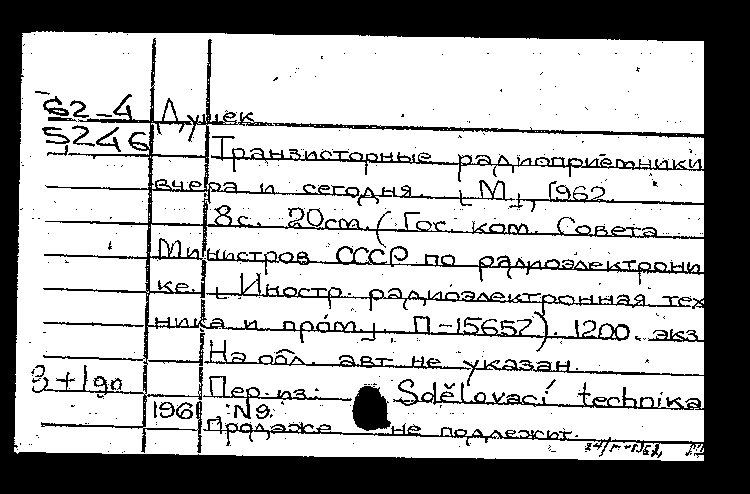 62-4 Душек
5246
Транзисторные радиоприёмники
вчера и сегодня. [М.], 1962.
8с. 20см. (Гос. ком. Совета
Министров СССР по радиоэлектрони
ке. [Иностр. радиоэлектронная тех
ника и пром.]. П-15652). 1200 экз
На обл. авт. не указан.
3+1 Пер. из: Sdělovací technika
1961 N9.
Продаже не подлежит.